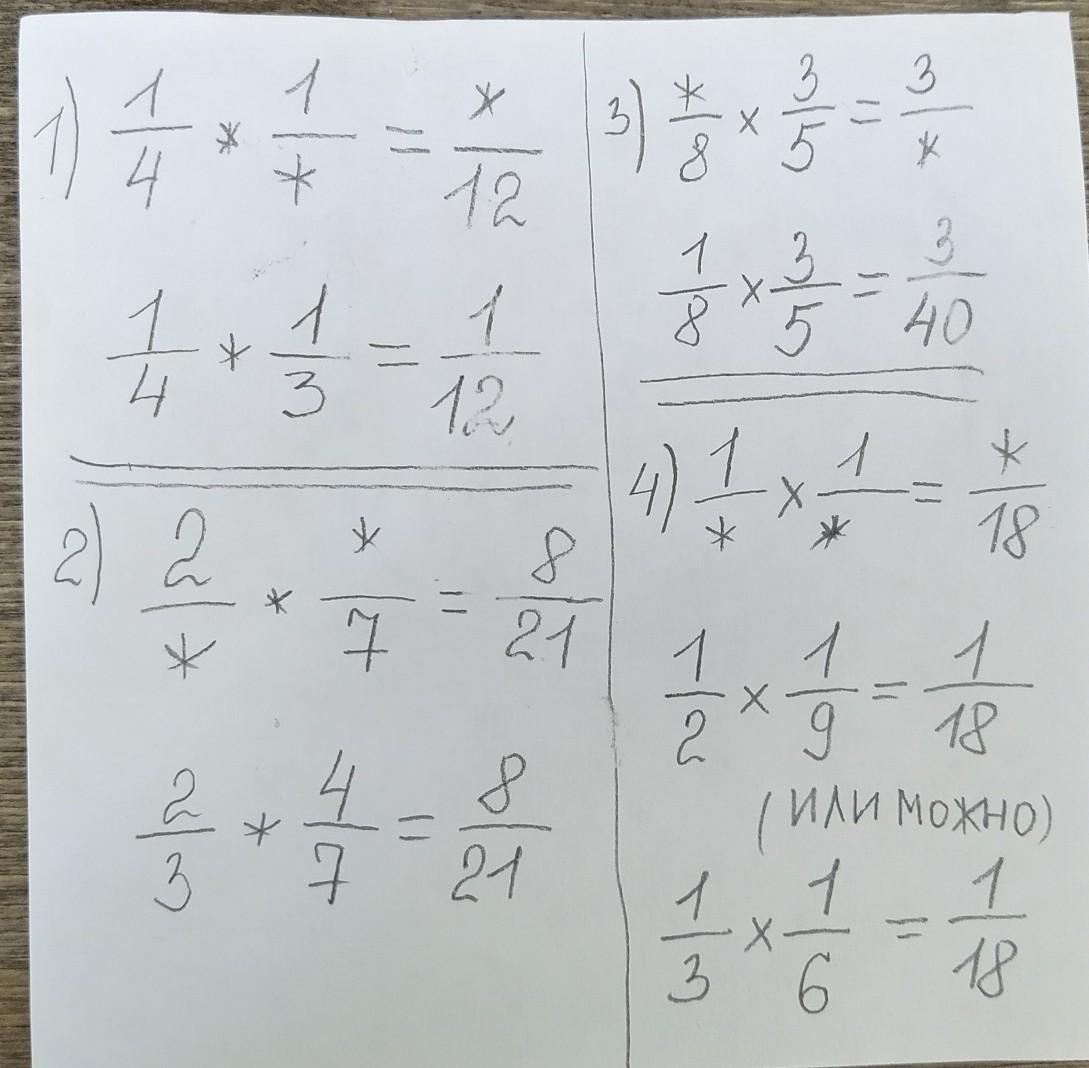 1) 1/4 * 1/* = */12
1/4 * 1/3 = 1/12
2) 2/* * */7 = 8/21
2/3 * 4/7 = 8/21
3) */8 × 3/5 = 3/*
1/8 × 3/5 = 3/40
4) 1/* × 1/* = */18
1/2 × 1/9 = 1/18
(ИЛИ МОЖНО)
1/3 × 1/6 = 1/18